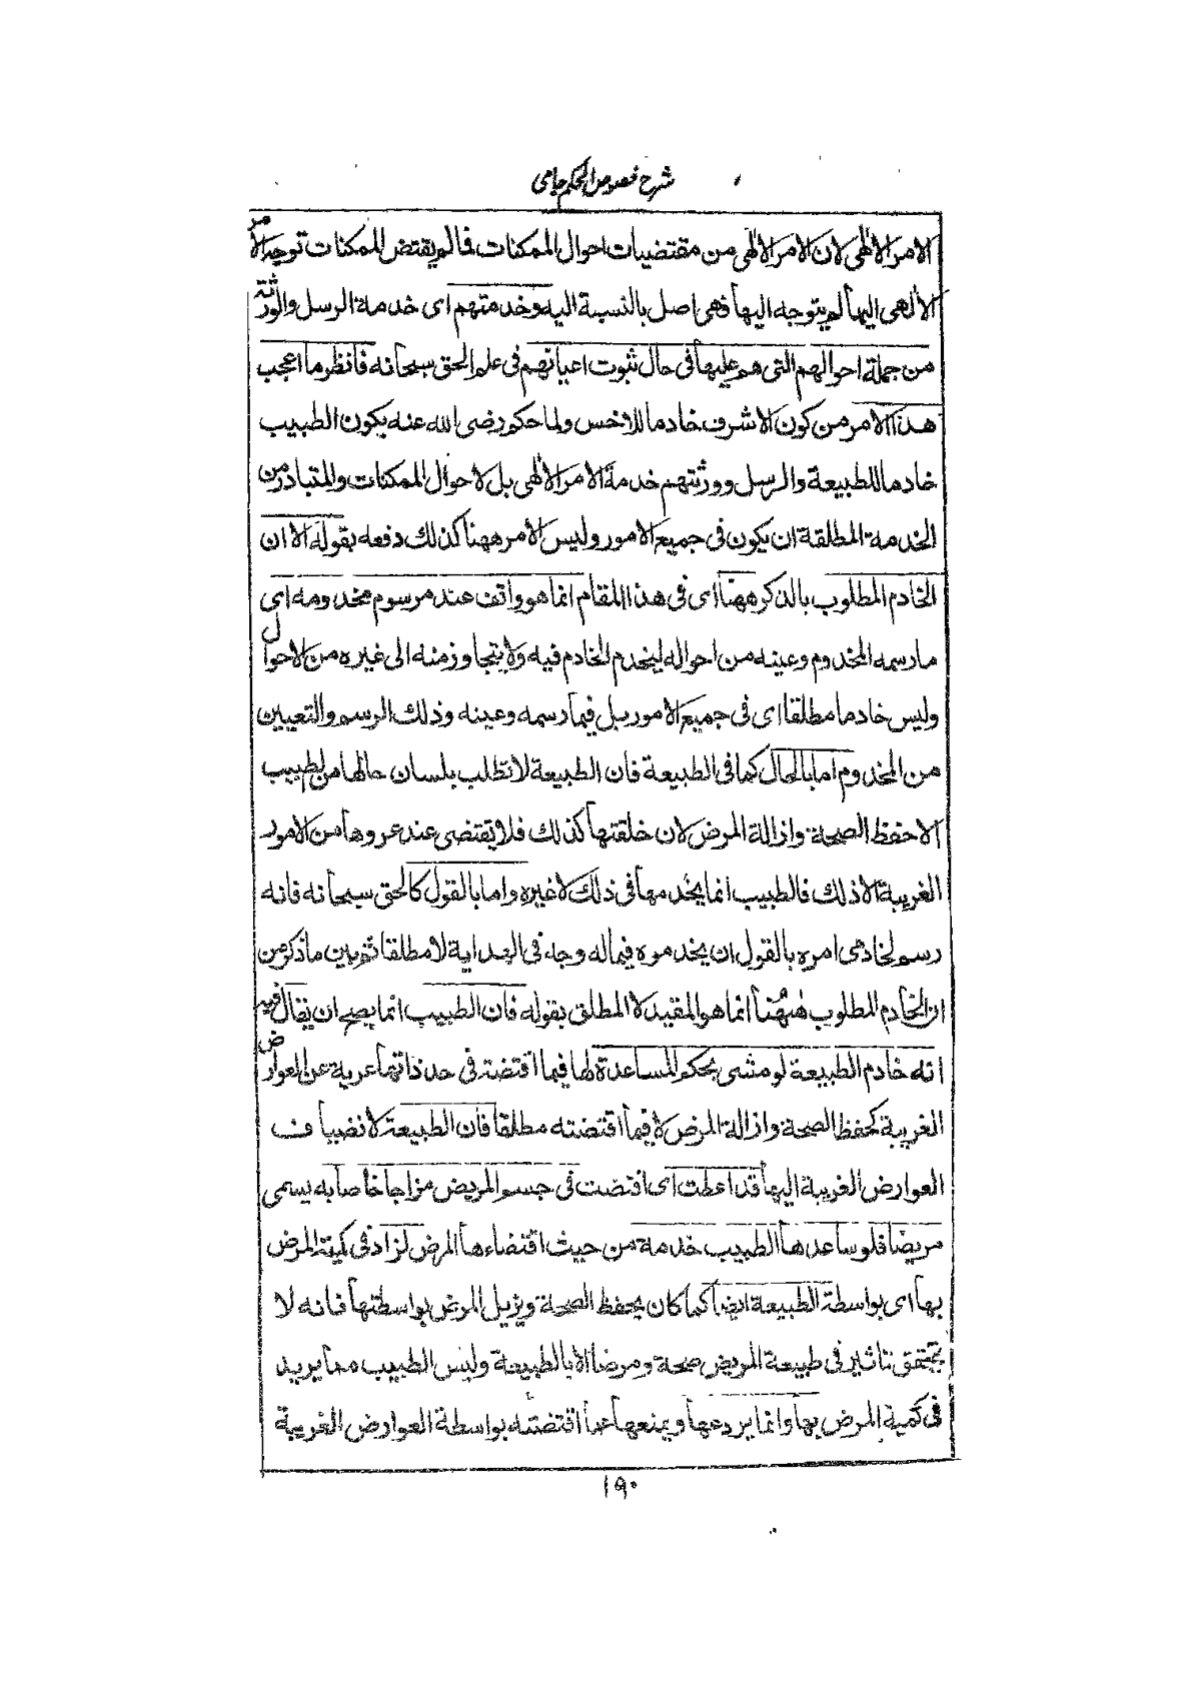 شرح فصوص الحكم جامى
الامر الالهى لان الامر الالهى من مقتضيات احوال الممكنات فما لم يقتض للممكنات توجه الامر
الالهى اليها لم يتوجه اليها فهى اصل بالنسبة اليه وخدمتهم اى خدمة الرسل والورثة
من جملة احوالهم التى هم عليها فى حال ثبوت اعيانهم فى علم الحق سبحانه فانظر ما اعجب
هذا الامر من كون الاشرف خادما للاخس ولما حكم رضى الله عنه بكون الطبيب
خادما للطبيعة والرسل وورثتهم خدمة الامر الالهى بل لاحوال الممكنات والمتبادر من
الخدمة المطلقة ان يكون فى جميع الامور وليس الامر ههنا كذلك دفعه بقوله الا ان
الخادم المطلوب بالذكر ههنا اى فى هذا المقام انما هو واقف عند مرسوم مخدومه اى
ما رسمه المخدوم وعينه من احواله ليخدم الخادم فيه ولا يتجاوز منه الى غيره من الاحوال
وليس خادما مطلقا اى فى جميع الامور بل فيما رسمه وعينه وذلك الرسم والتعيين
من المخدوم اما بالحال كما فى الطبيعة فان الطبيعة لا تطلب بلسان حالها من الطبيب
الا حفظ الصحة وازالة المرض لان خلقتها كذلك فلا يقتضى عند عروها من الامور
الغريبة الا ذلك فالطبيب انما يخدمها فى ذلك لا غيره واما بالقول كالحق سبحانه فانه
رسم لخادمى امره بالقول ان يخدموه فيما له وجه فى الهداية لا مطلقا ثم بين ما ذكر من
ان الخادم المطلوب ههنا انما هو المقيد لا المطلق بقوله فان الطبيب انما يصح ان يقال فيه
انه خادم الطبيعة لو مشى بحكم المساعدة لها فيما اقتضته فى حد ذاتها عرية عن العوارض
الغريبة كحفظ الصحة وازالة المرض لا فيما اقتضته مطلقا فان الطبيعة لانضياف
العوارض الغريبة اليها قد اعطت اى اقتضت فى جسم المريض مزاجا خاصا به يسمى
مريضا فلو ساعدها الطبيب خدمة من حيث اقتضاءها المرض لزاد فى كمية المرض
بها اى بواسطة الطبيعة ايضا كما كان يحفظ الصحة ويزيل المرض بواسطتها فانه لا
يتحقق تاثير فى طبيعة المريض صحة ومرضا الا بالطبيعة وليس الطبيب مما يريد
فى كمية المرض بها وانما يردعها ويمنعها عما اقتضته بواسطة العوارض الغريبة
١٩٠